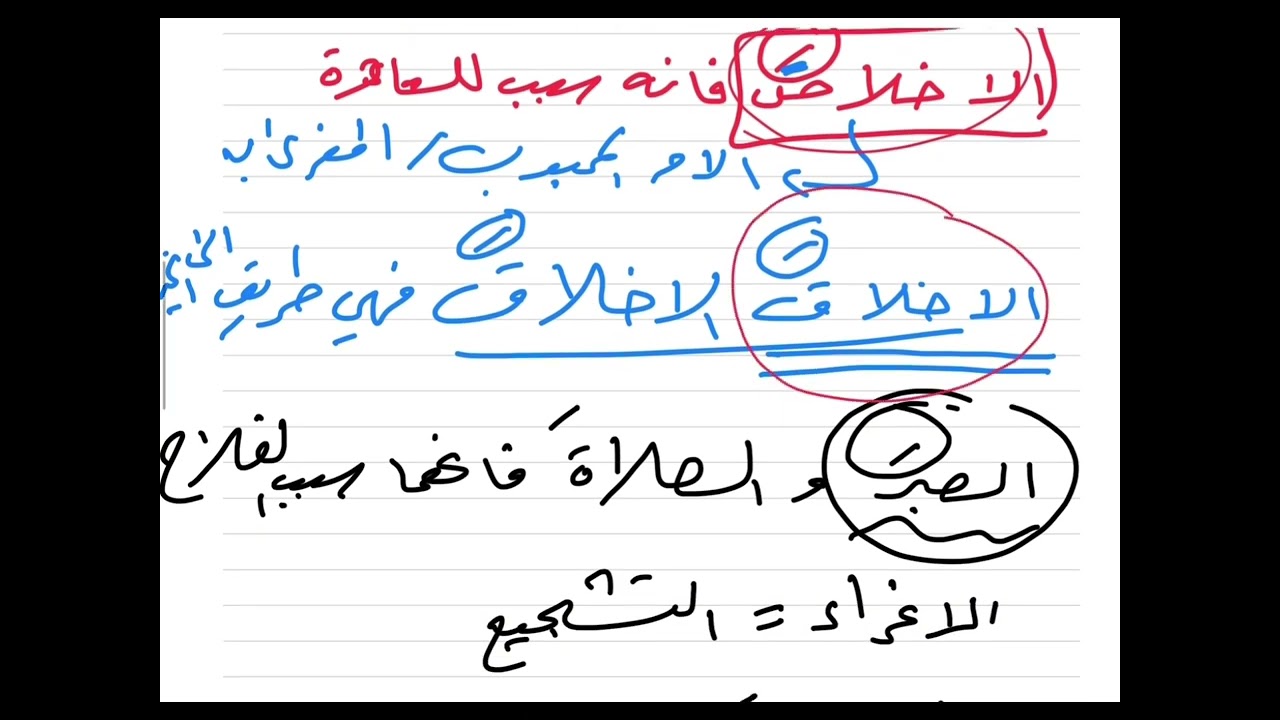 الاخلاصَ فانه سبب للسعادة
الامر المحبوب / المغرى به
الاخلاقَ الاخلاقَ فهي طريق الى
الصبرَ و الصلاةَ فانهما سبب لفلاح
الاغراء = التشجيع